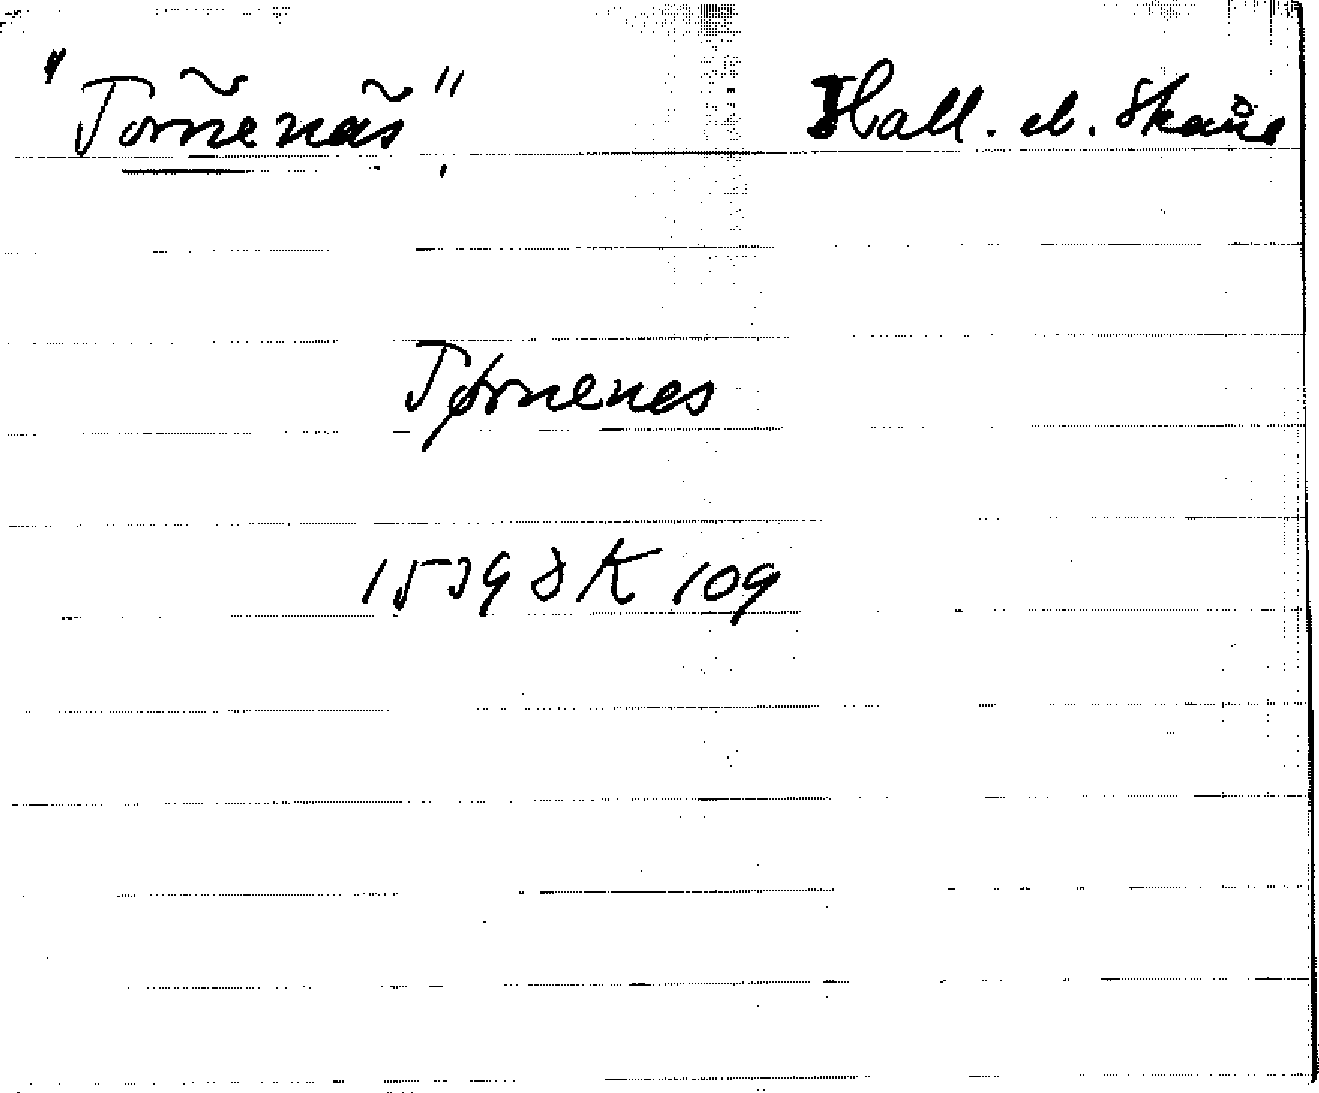 "Törnenäs". Hall. el. Skåne
Tørnenes
1539 SK 109